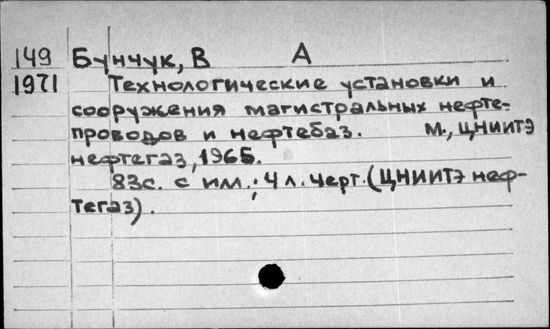 149 Бунчук, В А
1971 Технологические установки и
сооружения магистральных нефте-
проводов и нефтебаз. М., ЦНИИТЭ
нефтегаз, 1965.
83с. с илл.; 4 л. черт. (ЦНИИТЭ неф-
тегаз).